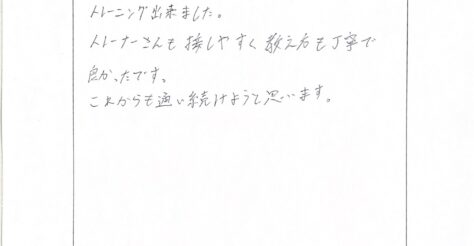 トレーニング出来ました。
トレーナーさんも接しやすく教え方も丁寧で
良かったです。
これからも通い続けようと思います。